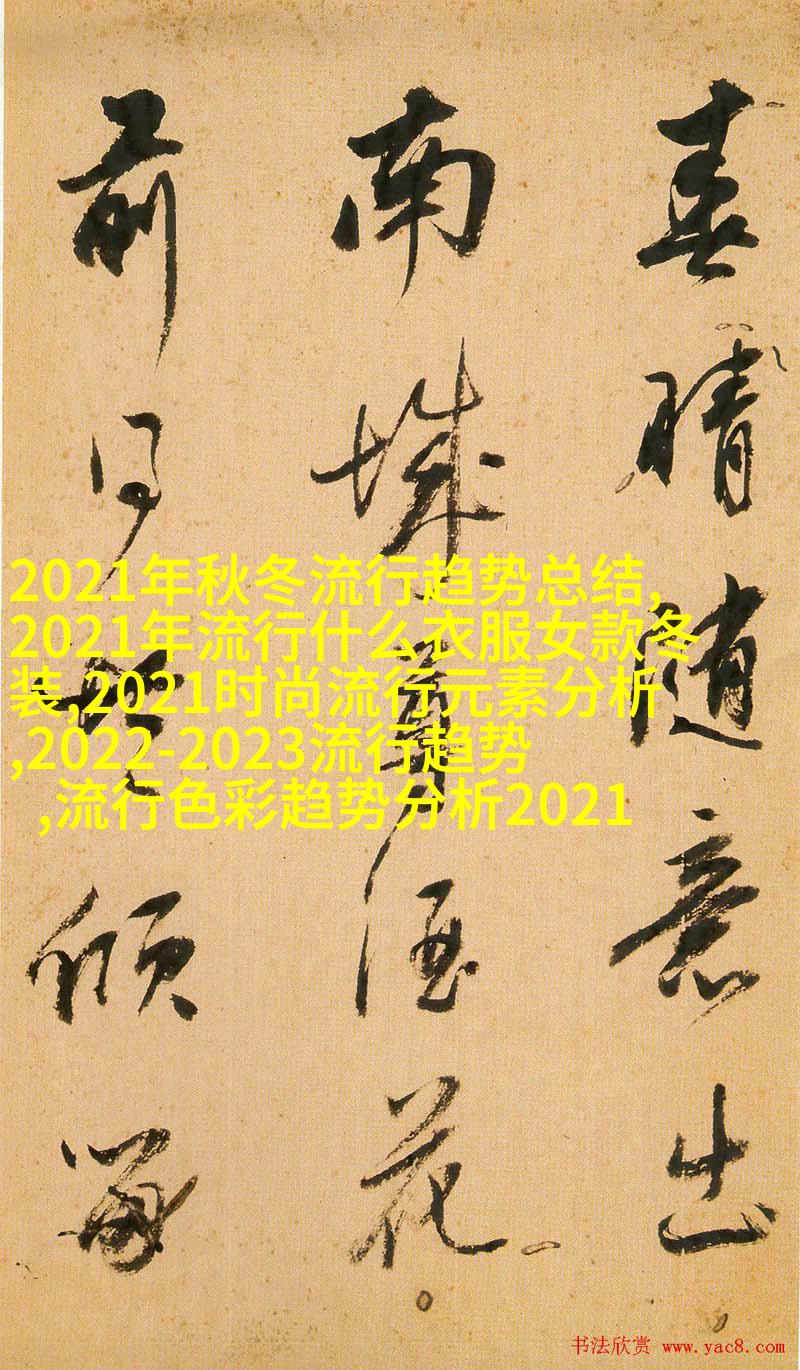 春晴随意出
南城酒花
前
2021年秋冬流行趋势总结,
2021年流行什么衣服女款冬
装,2021时尚流行元素分析
,2022-2023流行趋势
,流行色彩趋势分析2021
书法欣赏 www.yac8.com